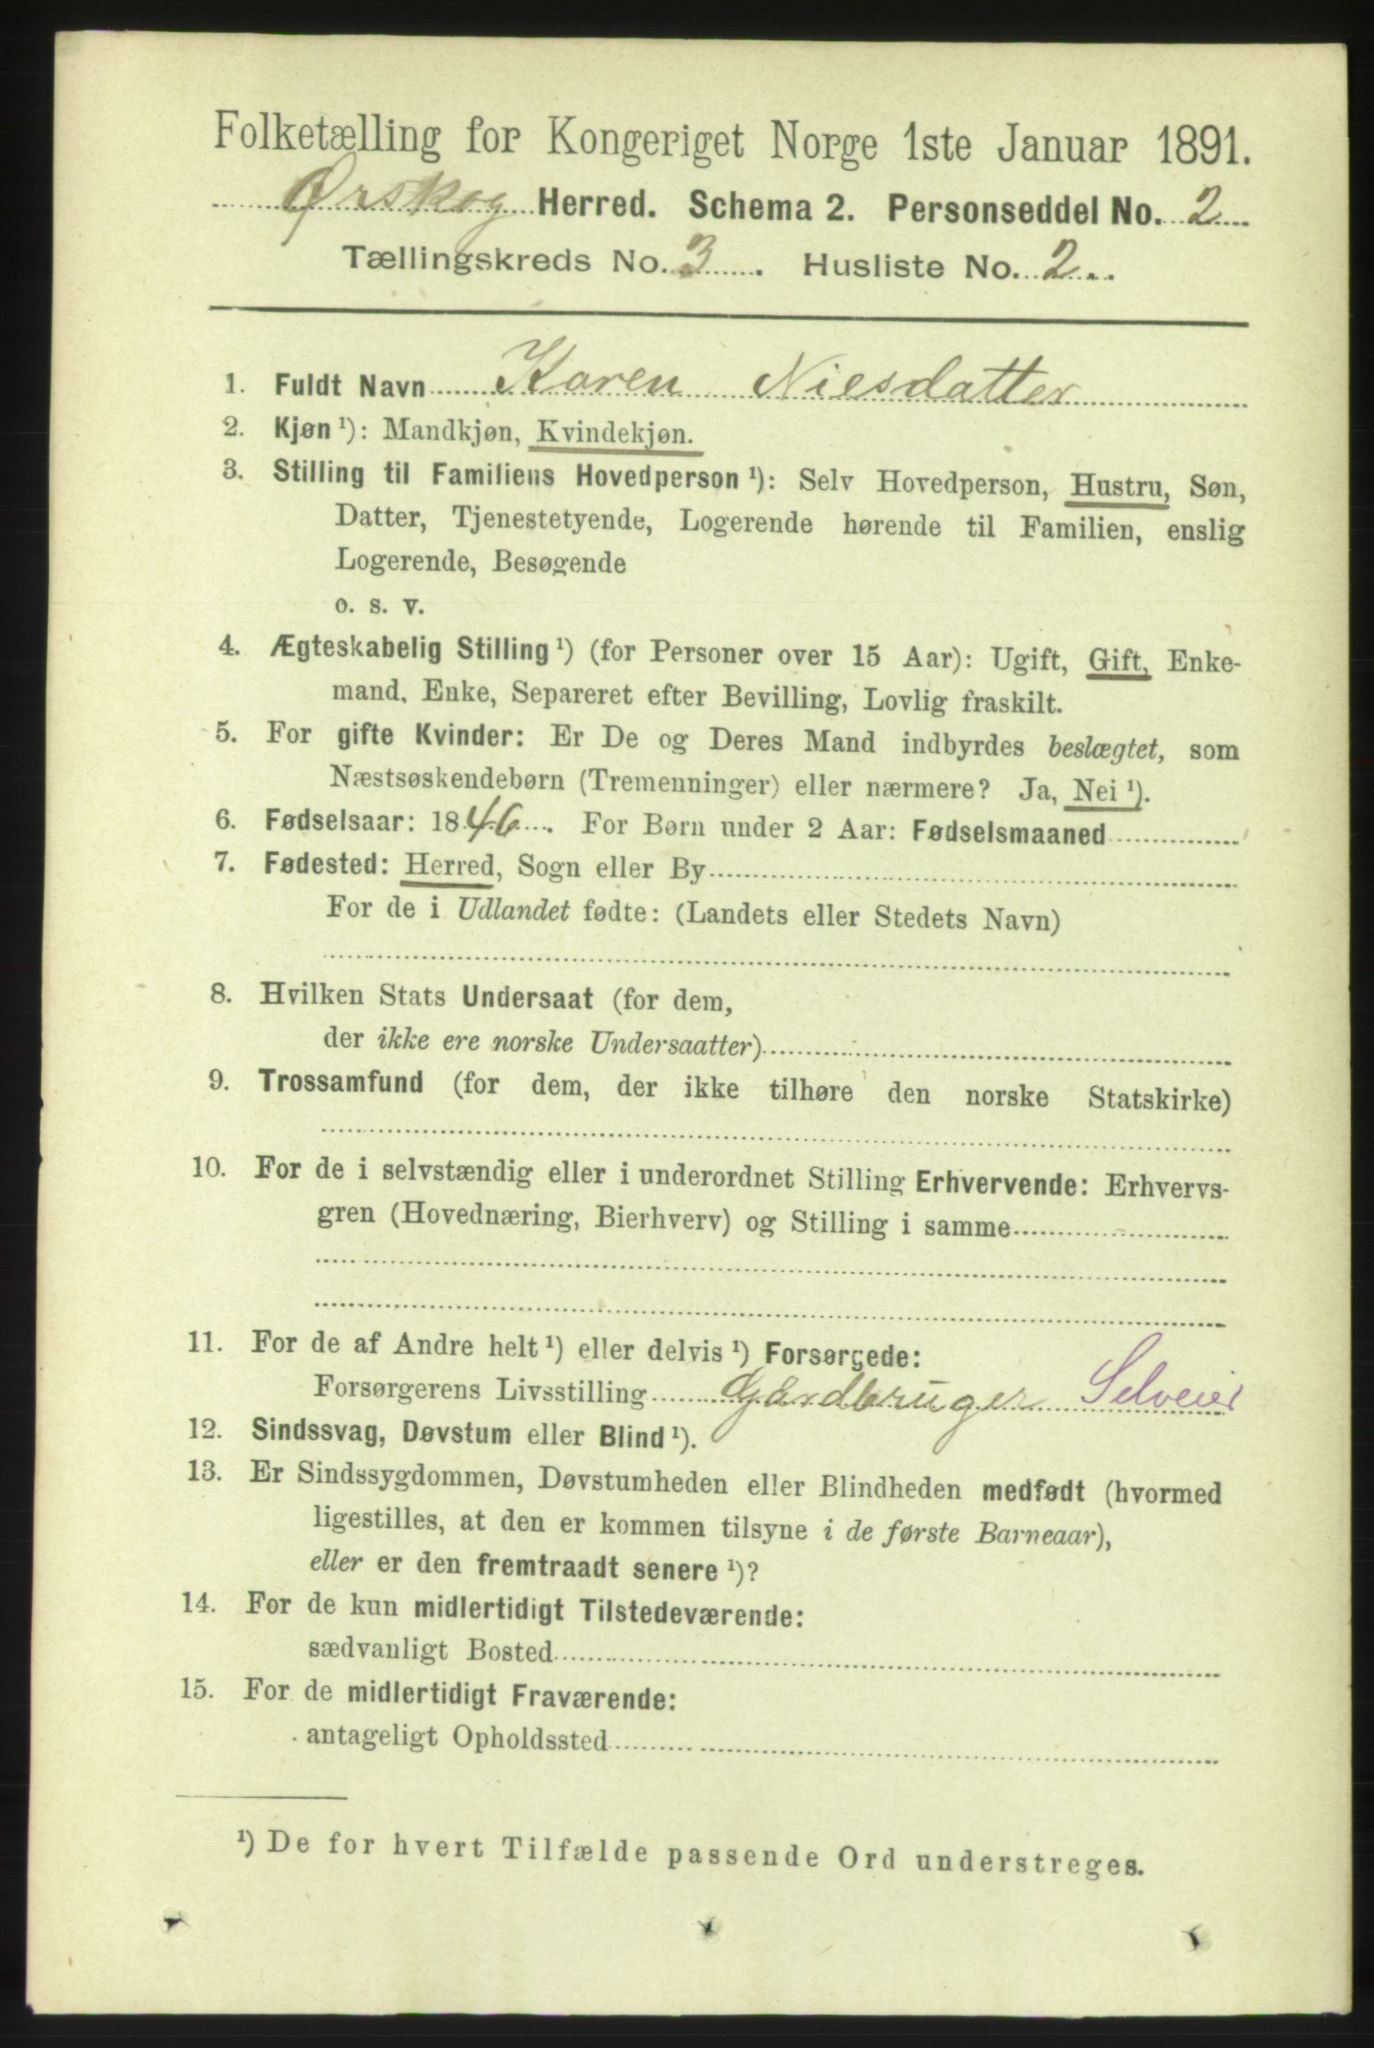 Folketælling for Kongeriget Norge 1ste Januar 1891.
Ørskog Herred. Schema 2. Personseddel No. 2
Tællingskreds No. 3. Husliste No. 2.
1. Fuldt Navn Karen Niesdatter
2. Kjøn ¹): Mandkjøn, Kvindekjøn.
3. Stilling til Familiens Hovedperson ¹): Selv Hovedperson, Hustru, Søn,
Datter, Tjenestetyende, Logerende hørende til Familien, enslig
Logerende, Besøgende
o. s. v.
4. Ægteskabelig Stilling ¹) (for Personer over 15 Aar): Ugift, Gift, Enke-
mand, Enke, Separeret efter Bevilling, Lovlig fraskilt.
5. For gifte Kvinder: Er De og Deres Mand indbyrdes beslægtet, som
Næstsøskendebørn (Tremenninger) eller nærmere? Ja, Nei ¹).
6. Fødselsaar: 1846. For Børn under 2 Aar: Fødselsmaaned
7. Fødested: Herred, Sogn eller By
For de i Udlandet fødte: (Landets eller Stedets Navn)
8. Hvilken Stats Undersaat (for dem,
der ikke ere norske Undersaatter)
9. Trossamfund (for dem, der ikke tilhøre den norske Statskirke)
10. For de i selvstændig eller i underordnet Stilling Erhvervende: Erhvervs-
gren (Hovednæring, Bierhverv) og Stilling i samme
11. For de af Andre helt ¹) eller delvis ¹) Forsørgede:
Forsørgerens Livsstilling Gårdbruger Selveier
12. Sindssvag, Døvstum eller Blind ¹).
13. Er Sindssygdommen, Døvstumheden eller Blindheden medfødt (hvormed
ligestilles, at den er kommen tilsyne i de første Barneaar),
eller er den fremtraadt senere ¹)?
14. For de kun midlertidigt Tilstedeværende:
sædvanligt Bosted
15. For de midlertidigt Fraværende:
antageligt Opholdssted
¹) De for hvert Tilfælde passende Ord understreges.